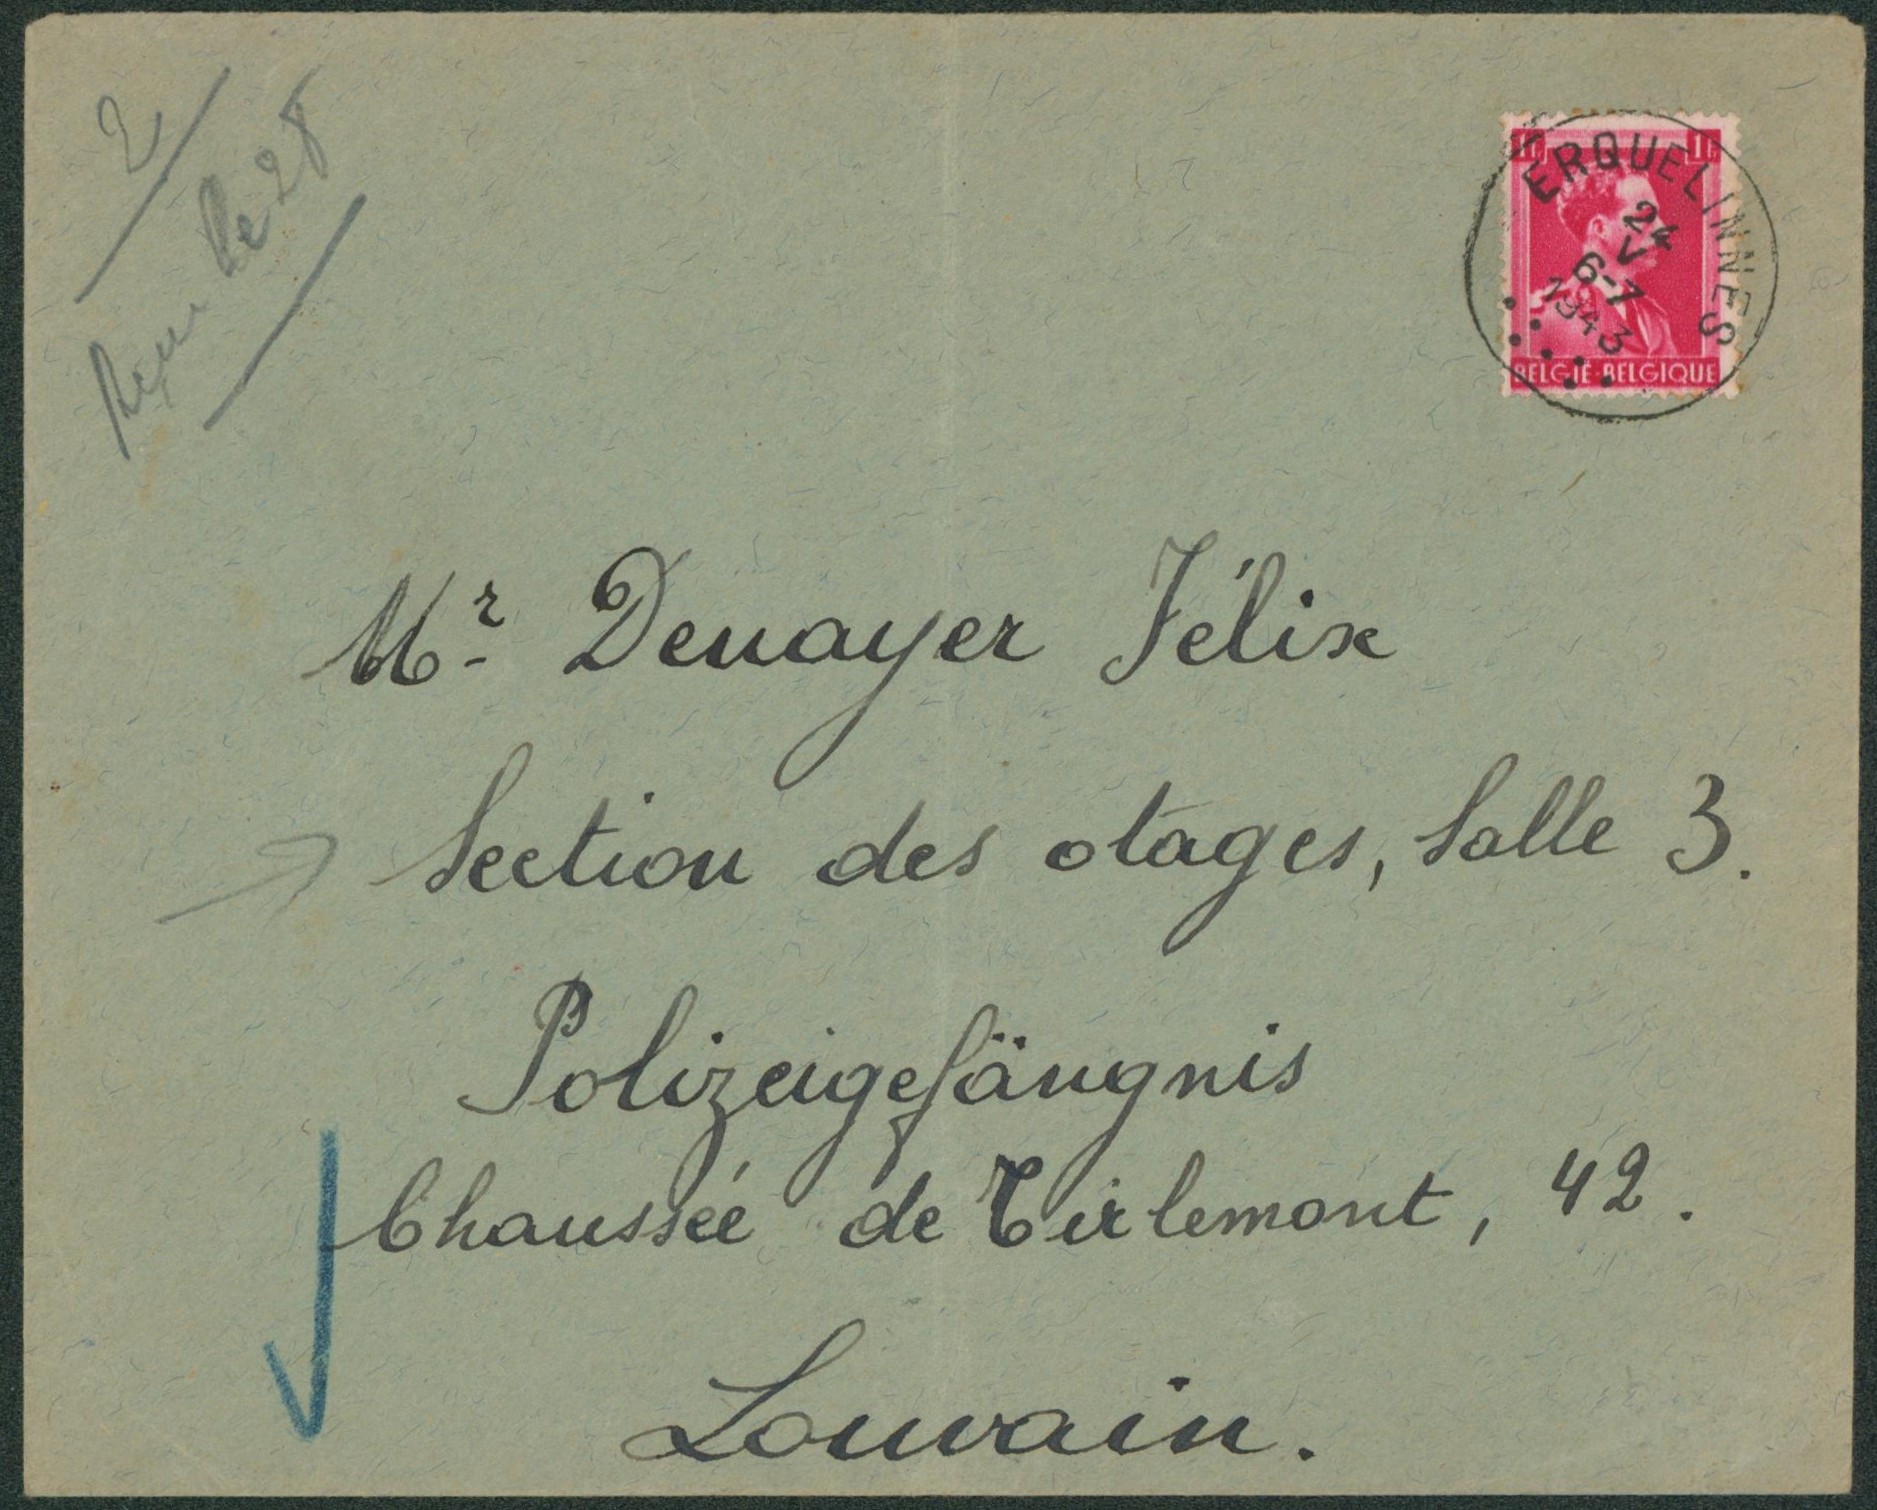 2
Reçu le 28
1Fr 1Fr
ERQUELINNES
24
V
6-7
1943
BELGIË-BELGIQUE
Mr Denayer Félix
Section des otages, Salle 3.
Polizeigefängnis
Chaussée de Tirlemont, 42.
Louvain.